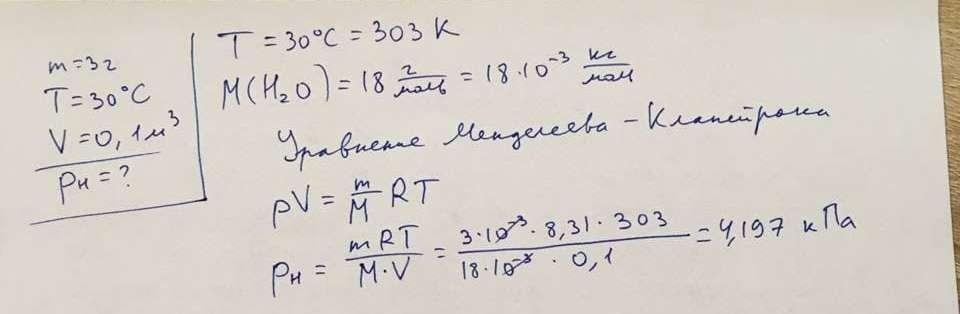 m=3г
T=30°C
V=0,1м³
Pн=?
T=30°C=303 K
M(H₂O)=18 г/моль=18·10⁻³ кг/моль
Уравнение Менделеева-Клапейрона
pV=m/M RT
Pн=mRT/M·V=3·10⁻³·8,31·303/18·10⁻³·0,1=4,197 кПа